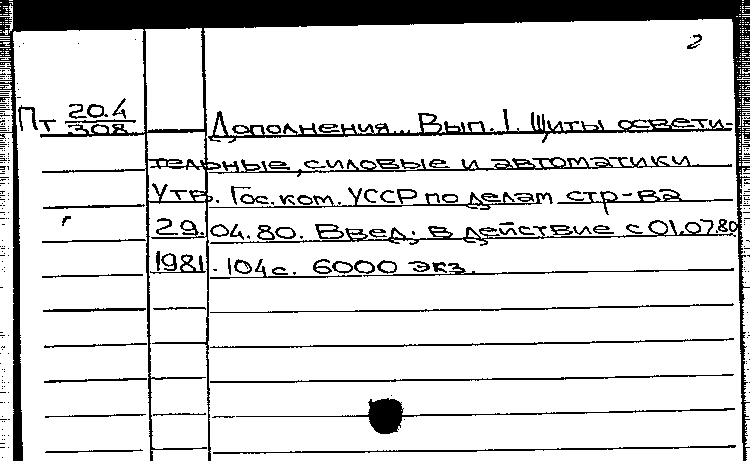 2
Пт 20.4/308 Дополнения... Вып. 1. Щиты освети-
тельные, силовые и автоматики
Утв. Гос. ком. УССР по делам стр-ва
29.04.80. Введ. в действие с 01.07.80
1981. 104 с. 6000 экз.